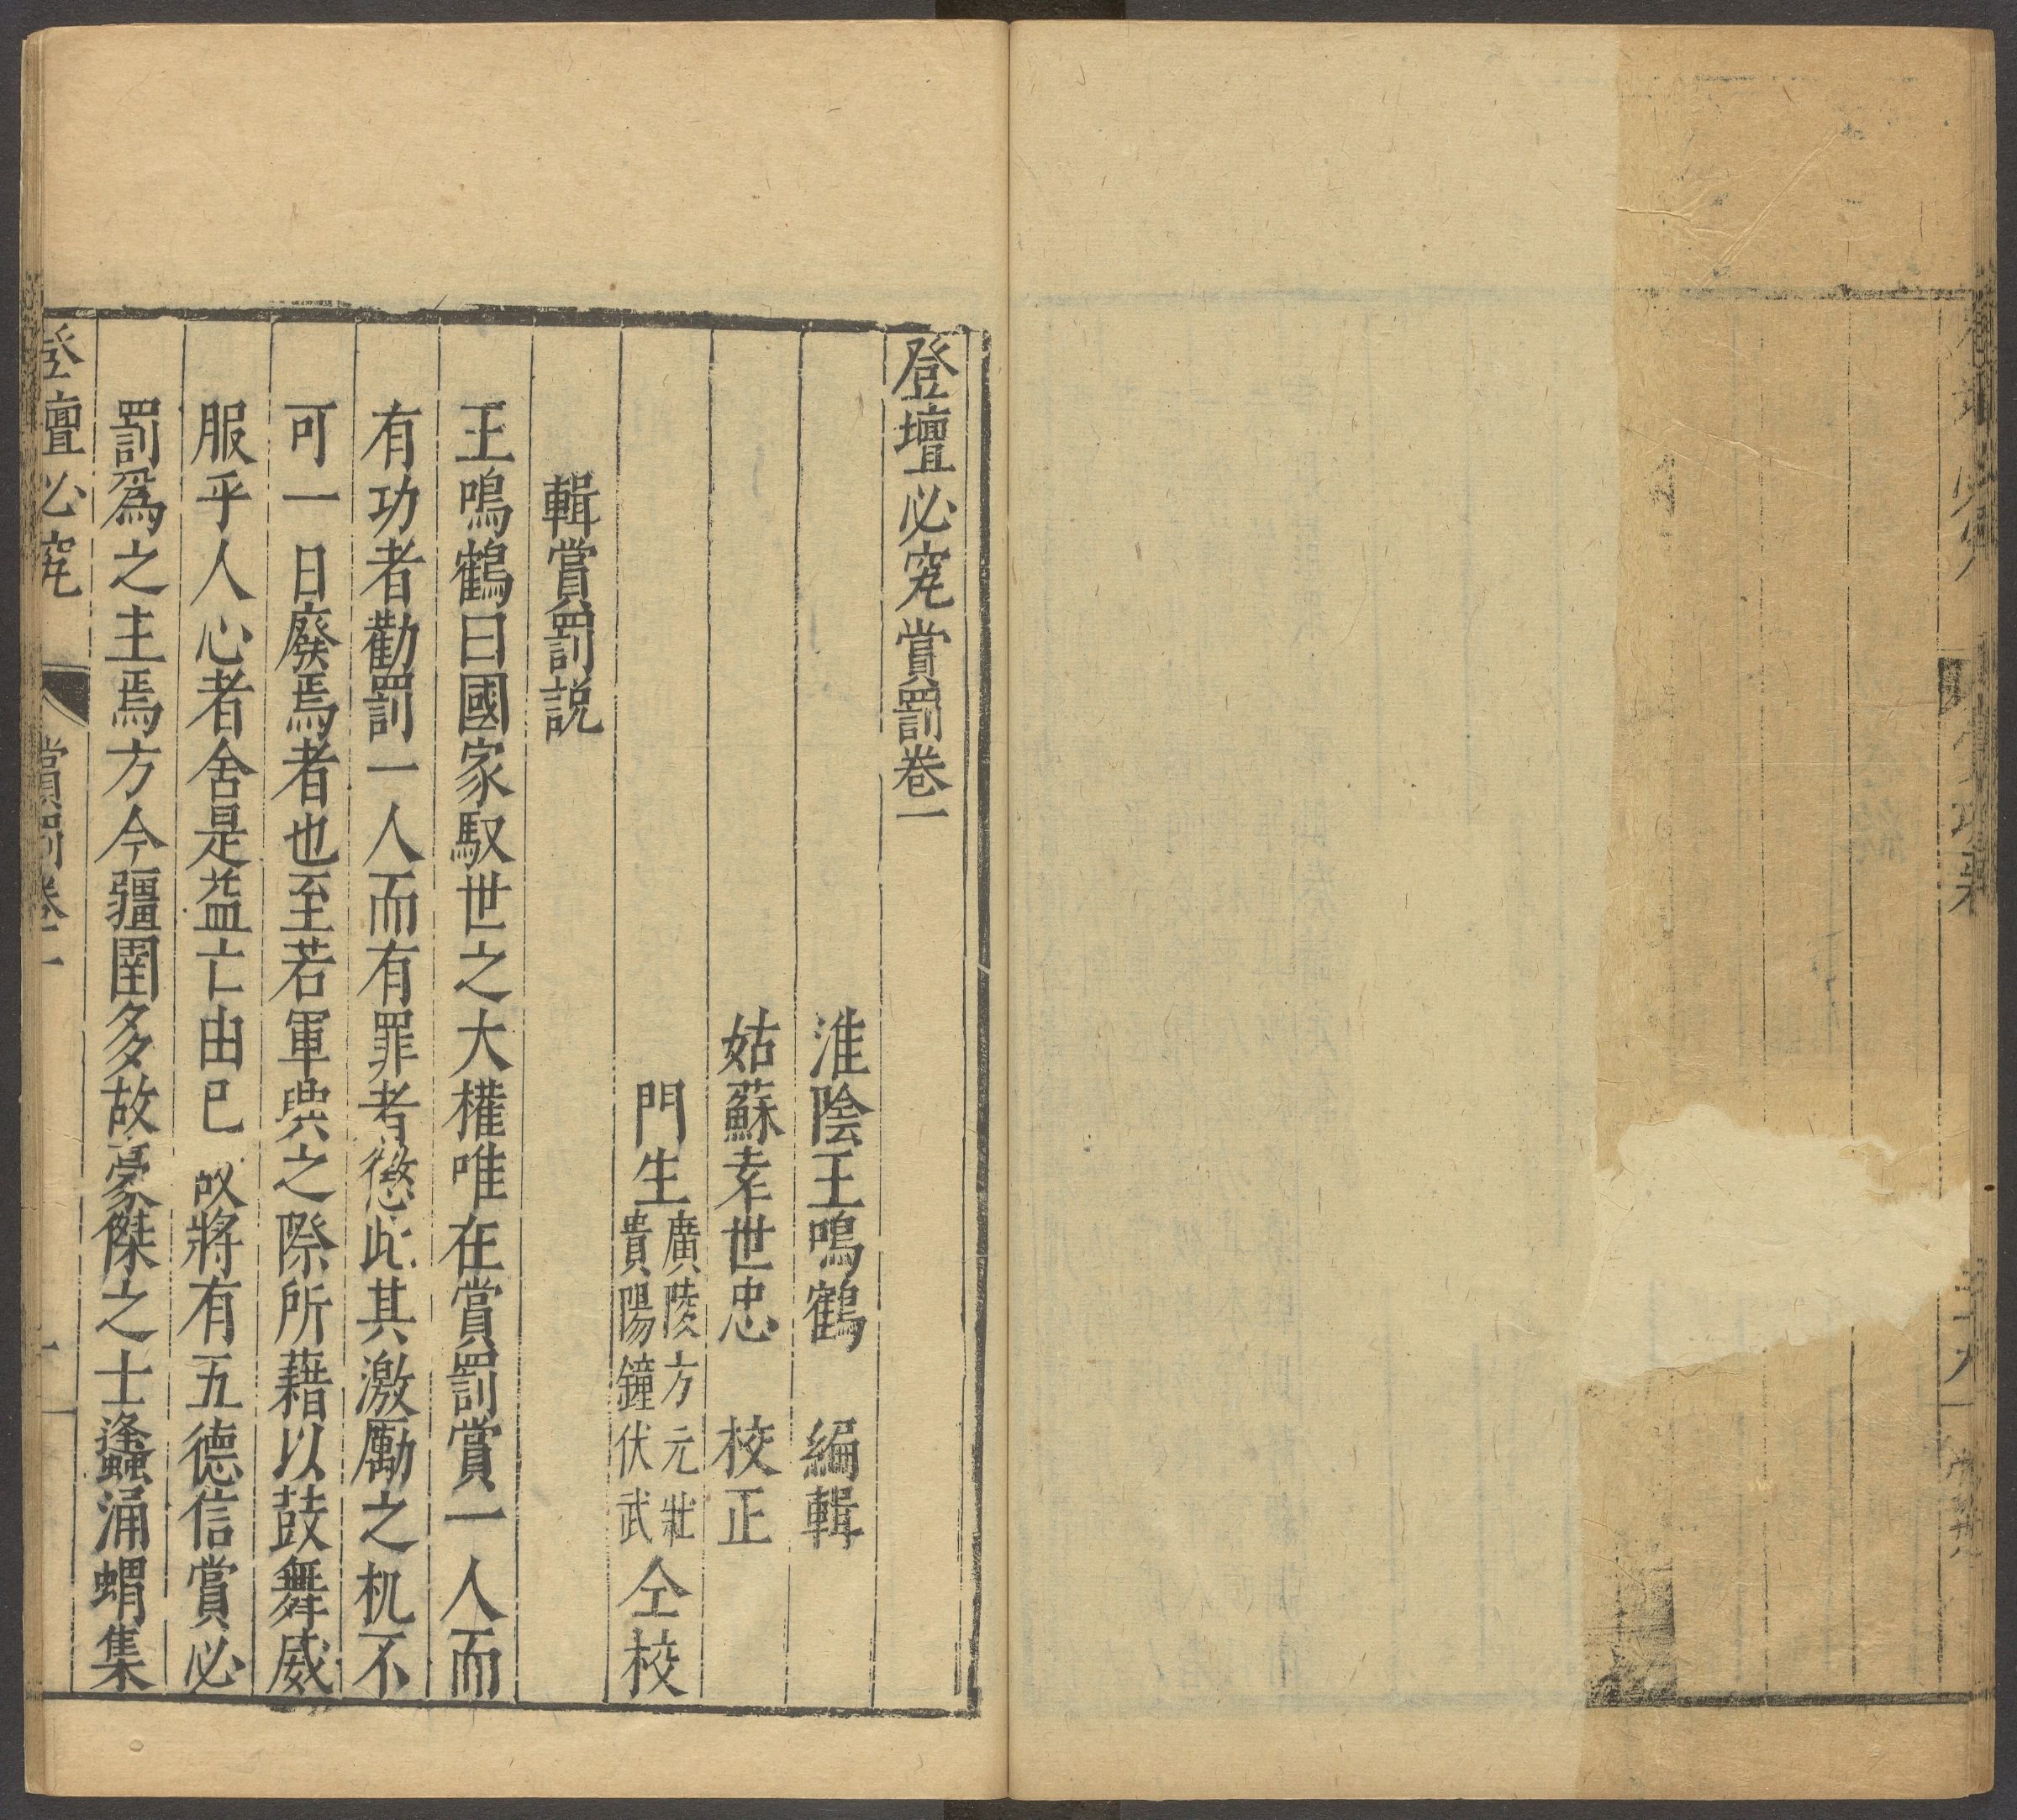 登壇必究賞罰卷一
淮陰王鳴鶴　編輯
姑蘇幸世忠　校正
門生廣陵方元壯貴陽鐘伏武仝校
輯賞罰説
王鳴鶴曰國家馭世之大權唯在賞罰賞一人而
有功者勸罰一人而有罪者懲此其激勵之机不
可一日廢焉者也至若軍興之際所藉以鼓舞威
服乎人心者舍是益亡由已故將有五德信賞必
罰爲之主焉方今疆圉多故豪傑之士蠭涌蝟集
登壇必究　賞罰卷一　一